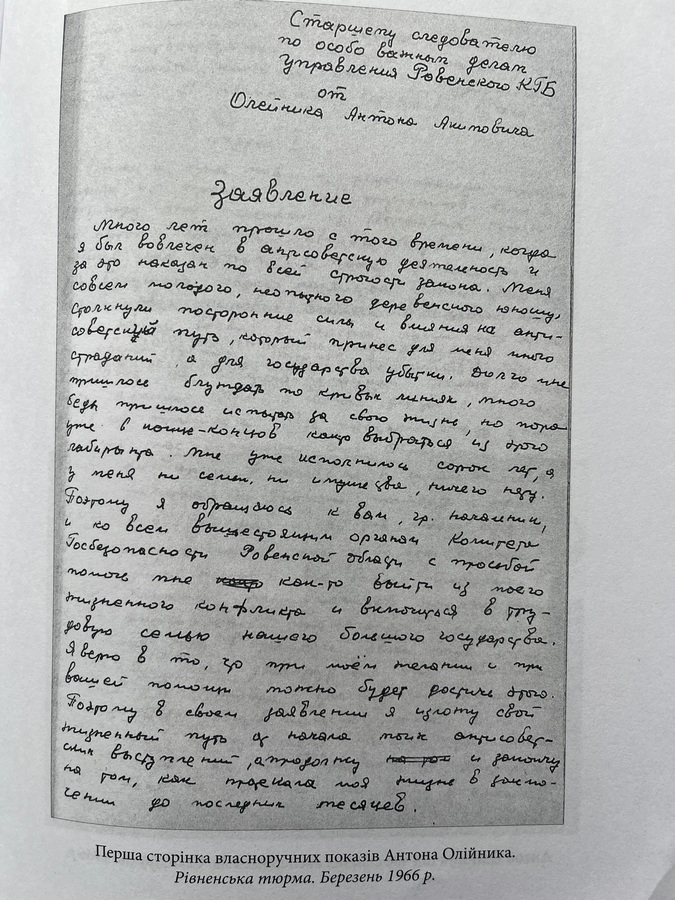 Старшему следователю
по особо важным делам
управления Ровенского КГБ
от
Олейника Антона Акиповича
Заявление
Много лет прошло с того времени, когда
я был вовлечен в антисоветскую деятельность и
за это наказан по всей строгости закона. Меня
совсем молодого, неопытного деревенского юношу,
столкнули посторонние силы и влияния на анти-
советский путь, который принес для меня много
страданий, а для государства убытки. Долго мне
пришлось блуждать по кривых линиях, много
беды пришлось испытать за свою жизнь, но пора
уже в конце-концов выбраться из этого
лабиринта. Мне уже исполнилось сорок лет, а
у меня ни семьи, ни имущества, ничего нету.
Поэтому я обращаюсь к вам, гр. начальник,
и ко всем вышестоящим органам Комитета
Госбезопасности Ровенской области с просьбой
помочь мне как-то выйти из моего
жизненного конфликта и включиться в тру-
довую семью нашего большого государства.
Я верю в то, что при моём желании и при
вашей помощи можно будет достичь этого.
Поэтому в своем заявлении я изложу свой
жизненный путь от начала моих антисовет-
ских выступлений, а продолжу и закончу
на том, как протекала моя жизнь в заклю-
чении до последних месяцев.
Перша сторінка власноручних показів Антона Олійника.
Рівненська тюрма. Березень 1966 р.